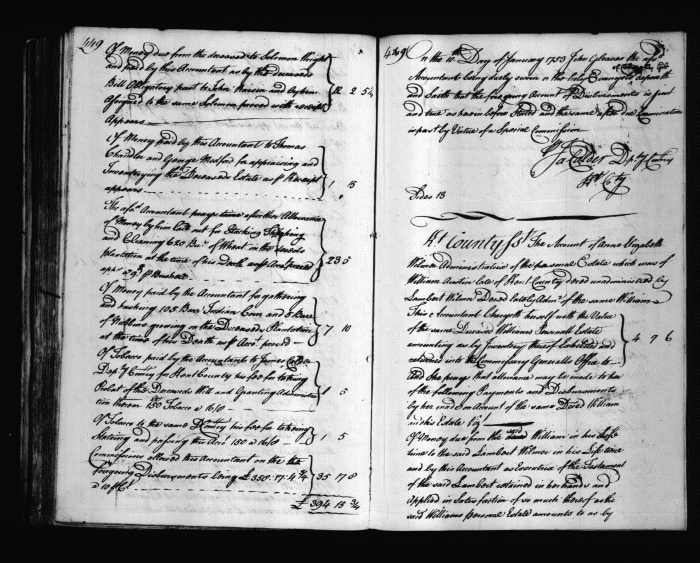 449
Of Money due from the deceased to Solomon Wright
and paid by this Accountant as by the deceaseds
Bill Obligatory past to John and by him
Assigned to the same Solomon proved with receipt 12 2 5¼
Appears
Of Money paid by this Accountant to Thomas
Chandler and George Medford for appraizing and
Inventarying the Deceaseds Estate as pr Receipt
appears 1 15
The afsd. Accountant prays time after the Allowance
of Money by him laid out for Stacking
and Cleaning 620 Bus. of Wheat on the deceaseds
plantation at the time of his Death as pr Acct. proved 23 5
appr. 9d. pr Bushell
Of Money paid by the Accountant for gathering
and husking 105 Barr. Indian Corn and 8 Barr.
of growing on the Deceaseds Plantation 7 10
at the time of his Death as pr Acct. proved
Of Tobacco paid by the Accountant to James Calder
Depty. Comry. for Kent County his fee for taking
Probat of the Deceaseds Will and Granting Administra
tion thereon 150 Tobacco a 16/8 1 5
Of Tobacco to the same Comry. his fee for taking
Stating and passing this Acct. 150 a 16/8 1 5
Commissions allowed this Accountant on the
foregoing Disbursments being £ 358..17..4¾ 35 17 8
a 10 pr Ct.
£ 394 15 ¾
429
On the 10th. Day of January 1753 John Gleaves the afsd.
Accountant being duely sworn on the holy Evangels deposeth
and Saith that the foregoing Account of Disbursments is just
and true as herein before Stated and the same after due Examination
is past by Virtue of a Special Commission
Js. Calder Dpty. Comry
Kt. Cty.
Sides 13
Kt. County Sst. The Amount of Anne Elizabeth
Wilmer Administratrix of the personal Estate which was of
William Austin late of Kent County deced unadministred by
Lambert Wilmer Deced lately Admr. of the same William
This Accountant Chargeth herself with the Value
of the same Deceased Williams Personall Estate
amounting as by Inventory thereof Exhibited and 4 7 6
returned into the Commissary Generalls Office to
And she prays that allowance may be made to her
of the following Payments and Disbursments
by her made on Account of the same Deced William
in his Estate Viz
Of Money due from the said William in his life
time to the said Lambert Wilmer in his Life time
and by this Accountant as Executrix of the Testament
of the said Lambert retained in her hands and
applied in Satisfaction of so much thereof as the
said Williams personal Estate amounts to as by